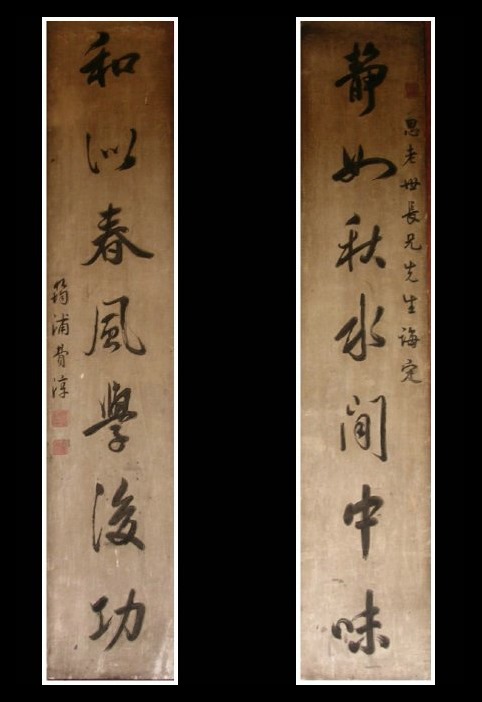 思老世長兄先生誨定
靜如秋水閒中味
和似春風學後功
筠浦費淳